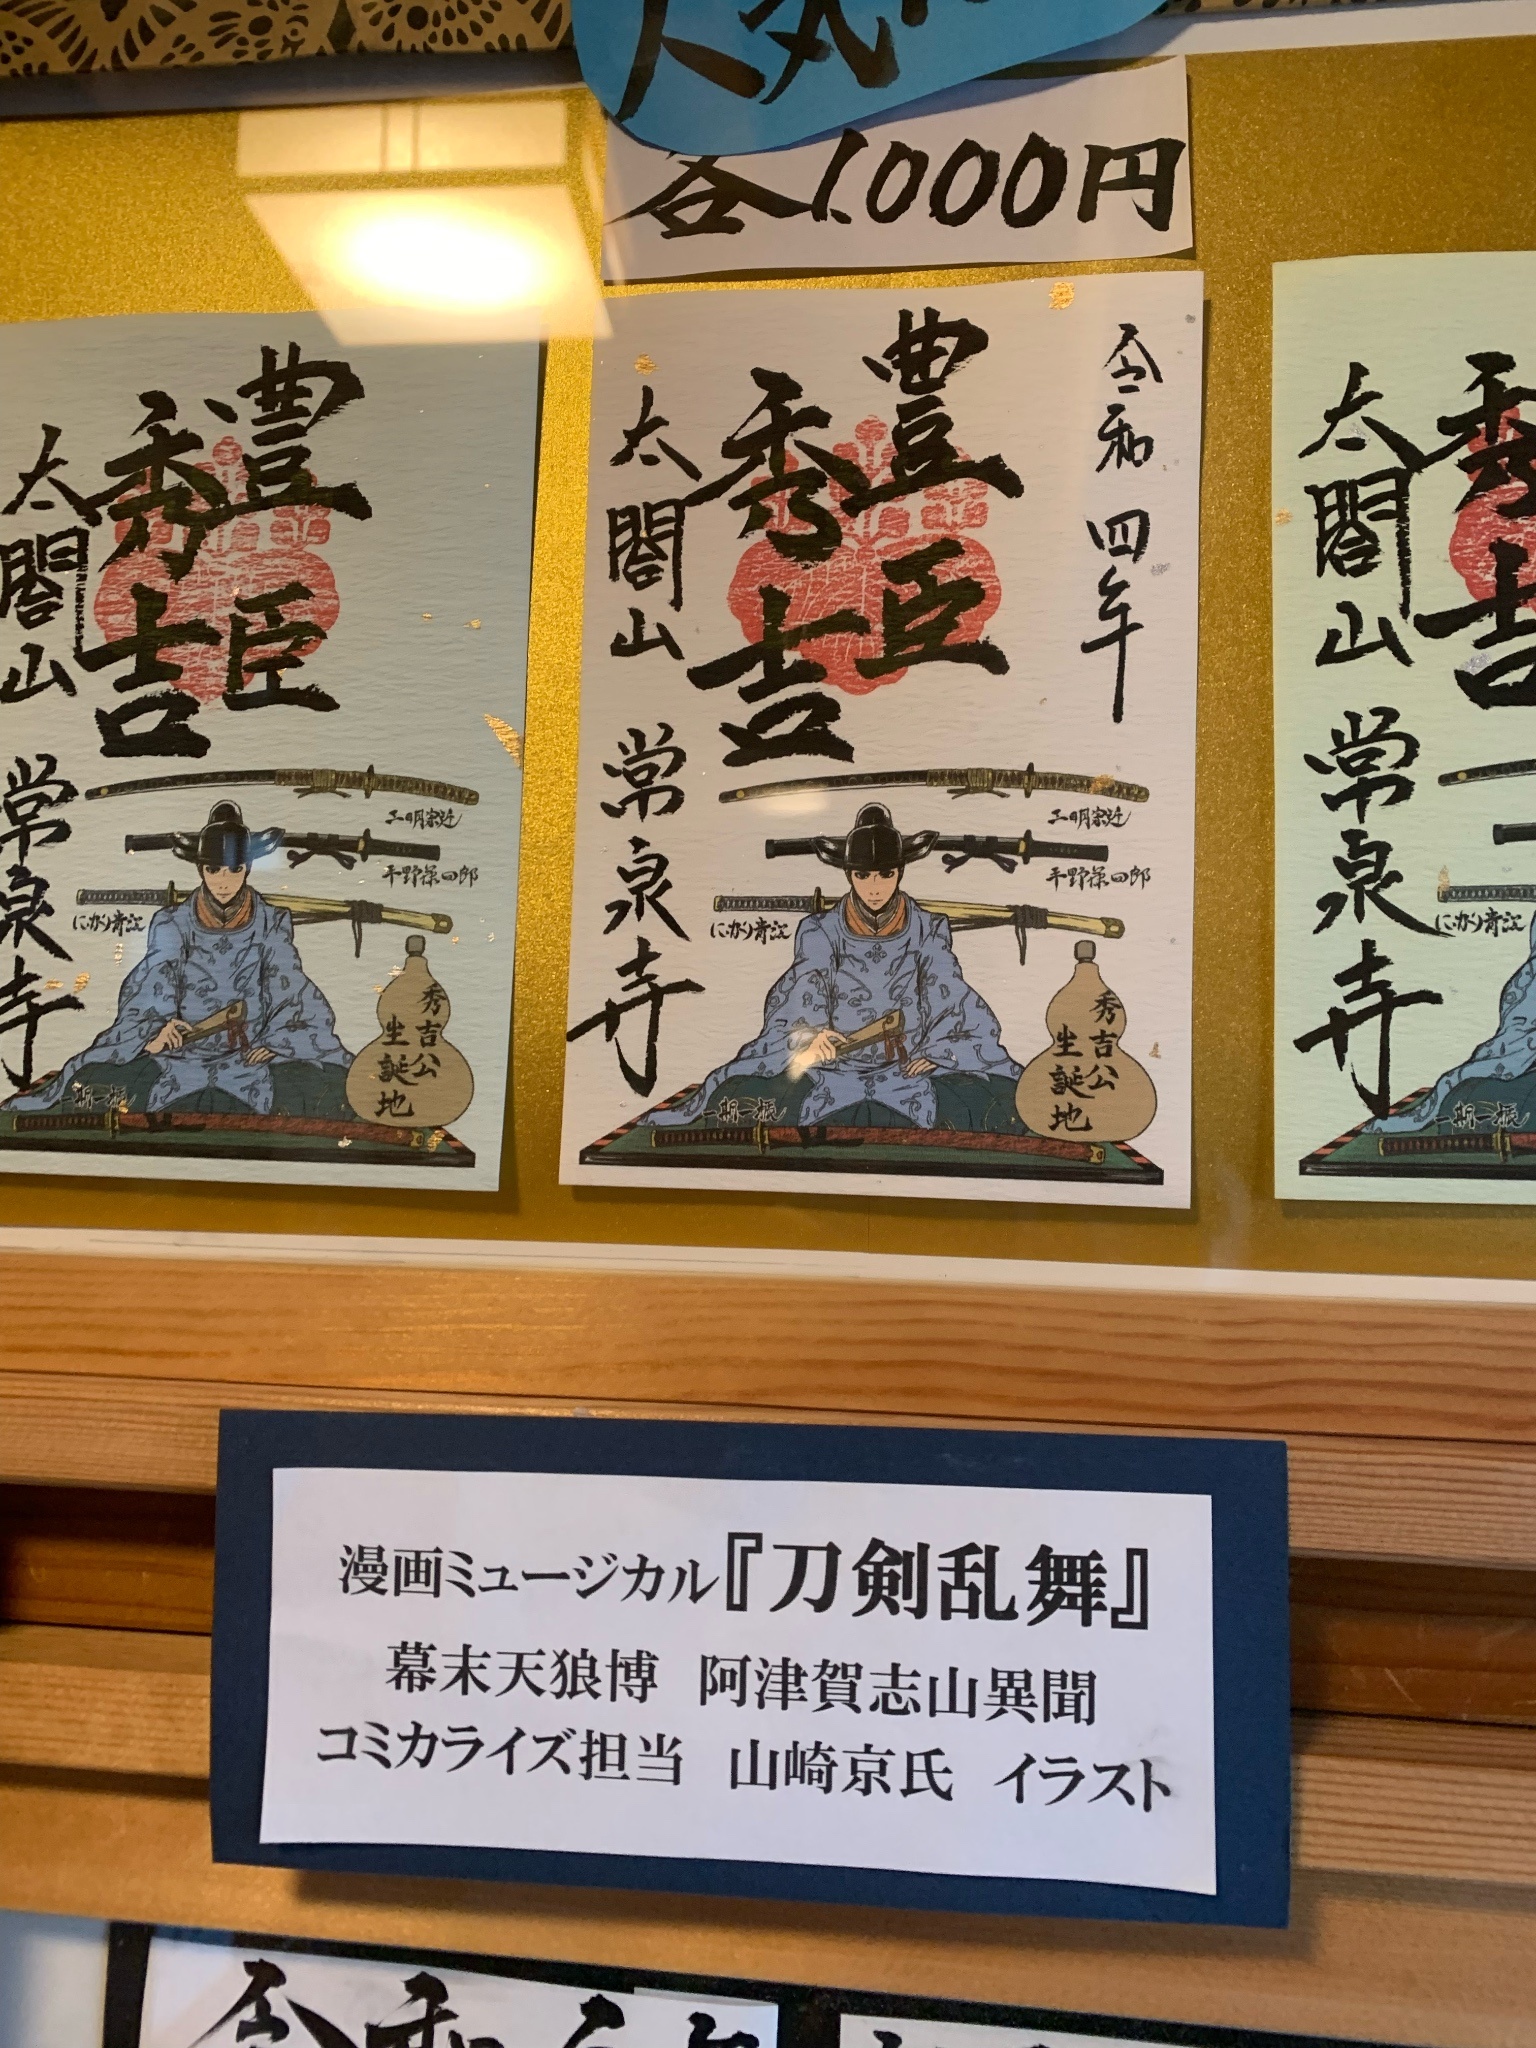 人気
各1,000円
豊臣
秀吉
太閤山 常泉寺
三日月宗近
平野藤四郎
にっかり青江
秀吉公
生誕地
一期一振
令和四年
豊臣
秀吉
太閤山 常泉寺
三日月宗近
平野藤四郎
にっかり青江
秀吉公
生誕地
一期一振
秀吉
太閤山 常泉寺
にっかり青江
一期一振
漫画ミュージカル『刀剣乱舞』
幕末天狼博 阿津賀志山異聞
コミカライズ担当 山崎京氏 イラスト
令和